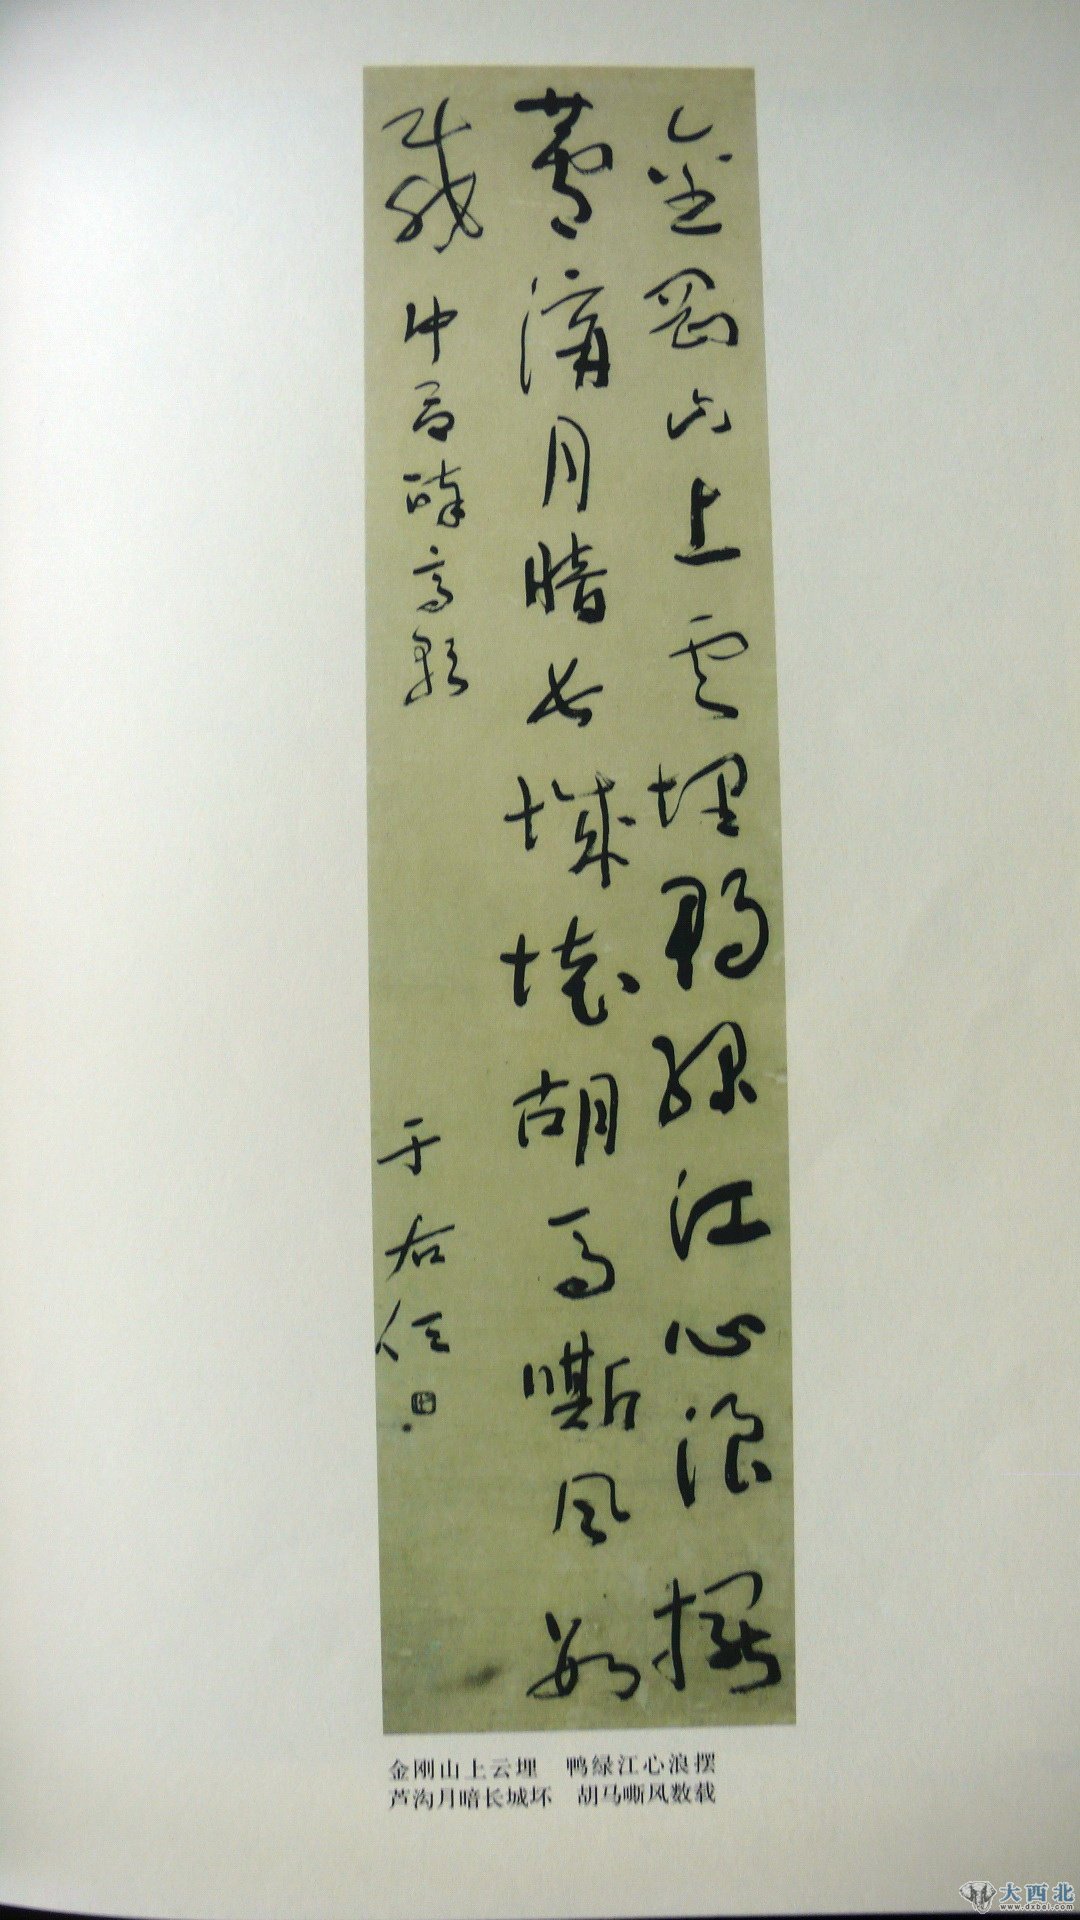 金剛山上雲埋鴨綠江心浪擺
蘆溝月暗長城壞胡馬嘶風數
載 中呂醉高歌 于右任
金刚山上云埋 鸭绿江心浪摆
芦沟月暗长城坏 胡马嘶风数载
大西北
www.dxbei.com